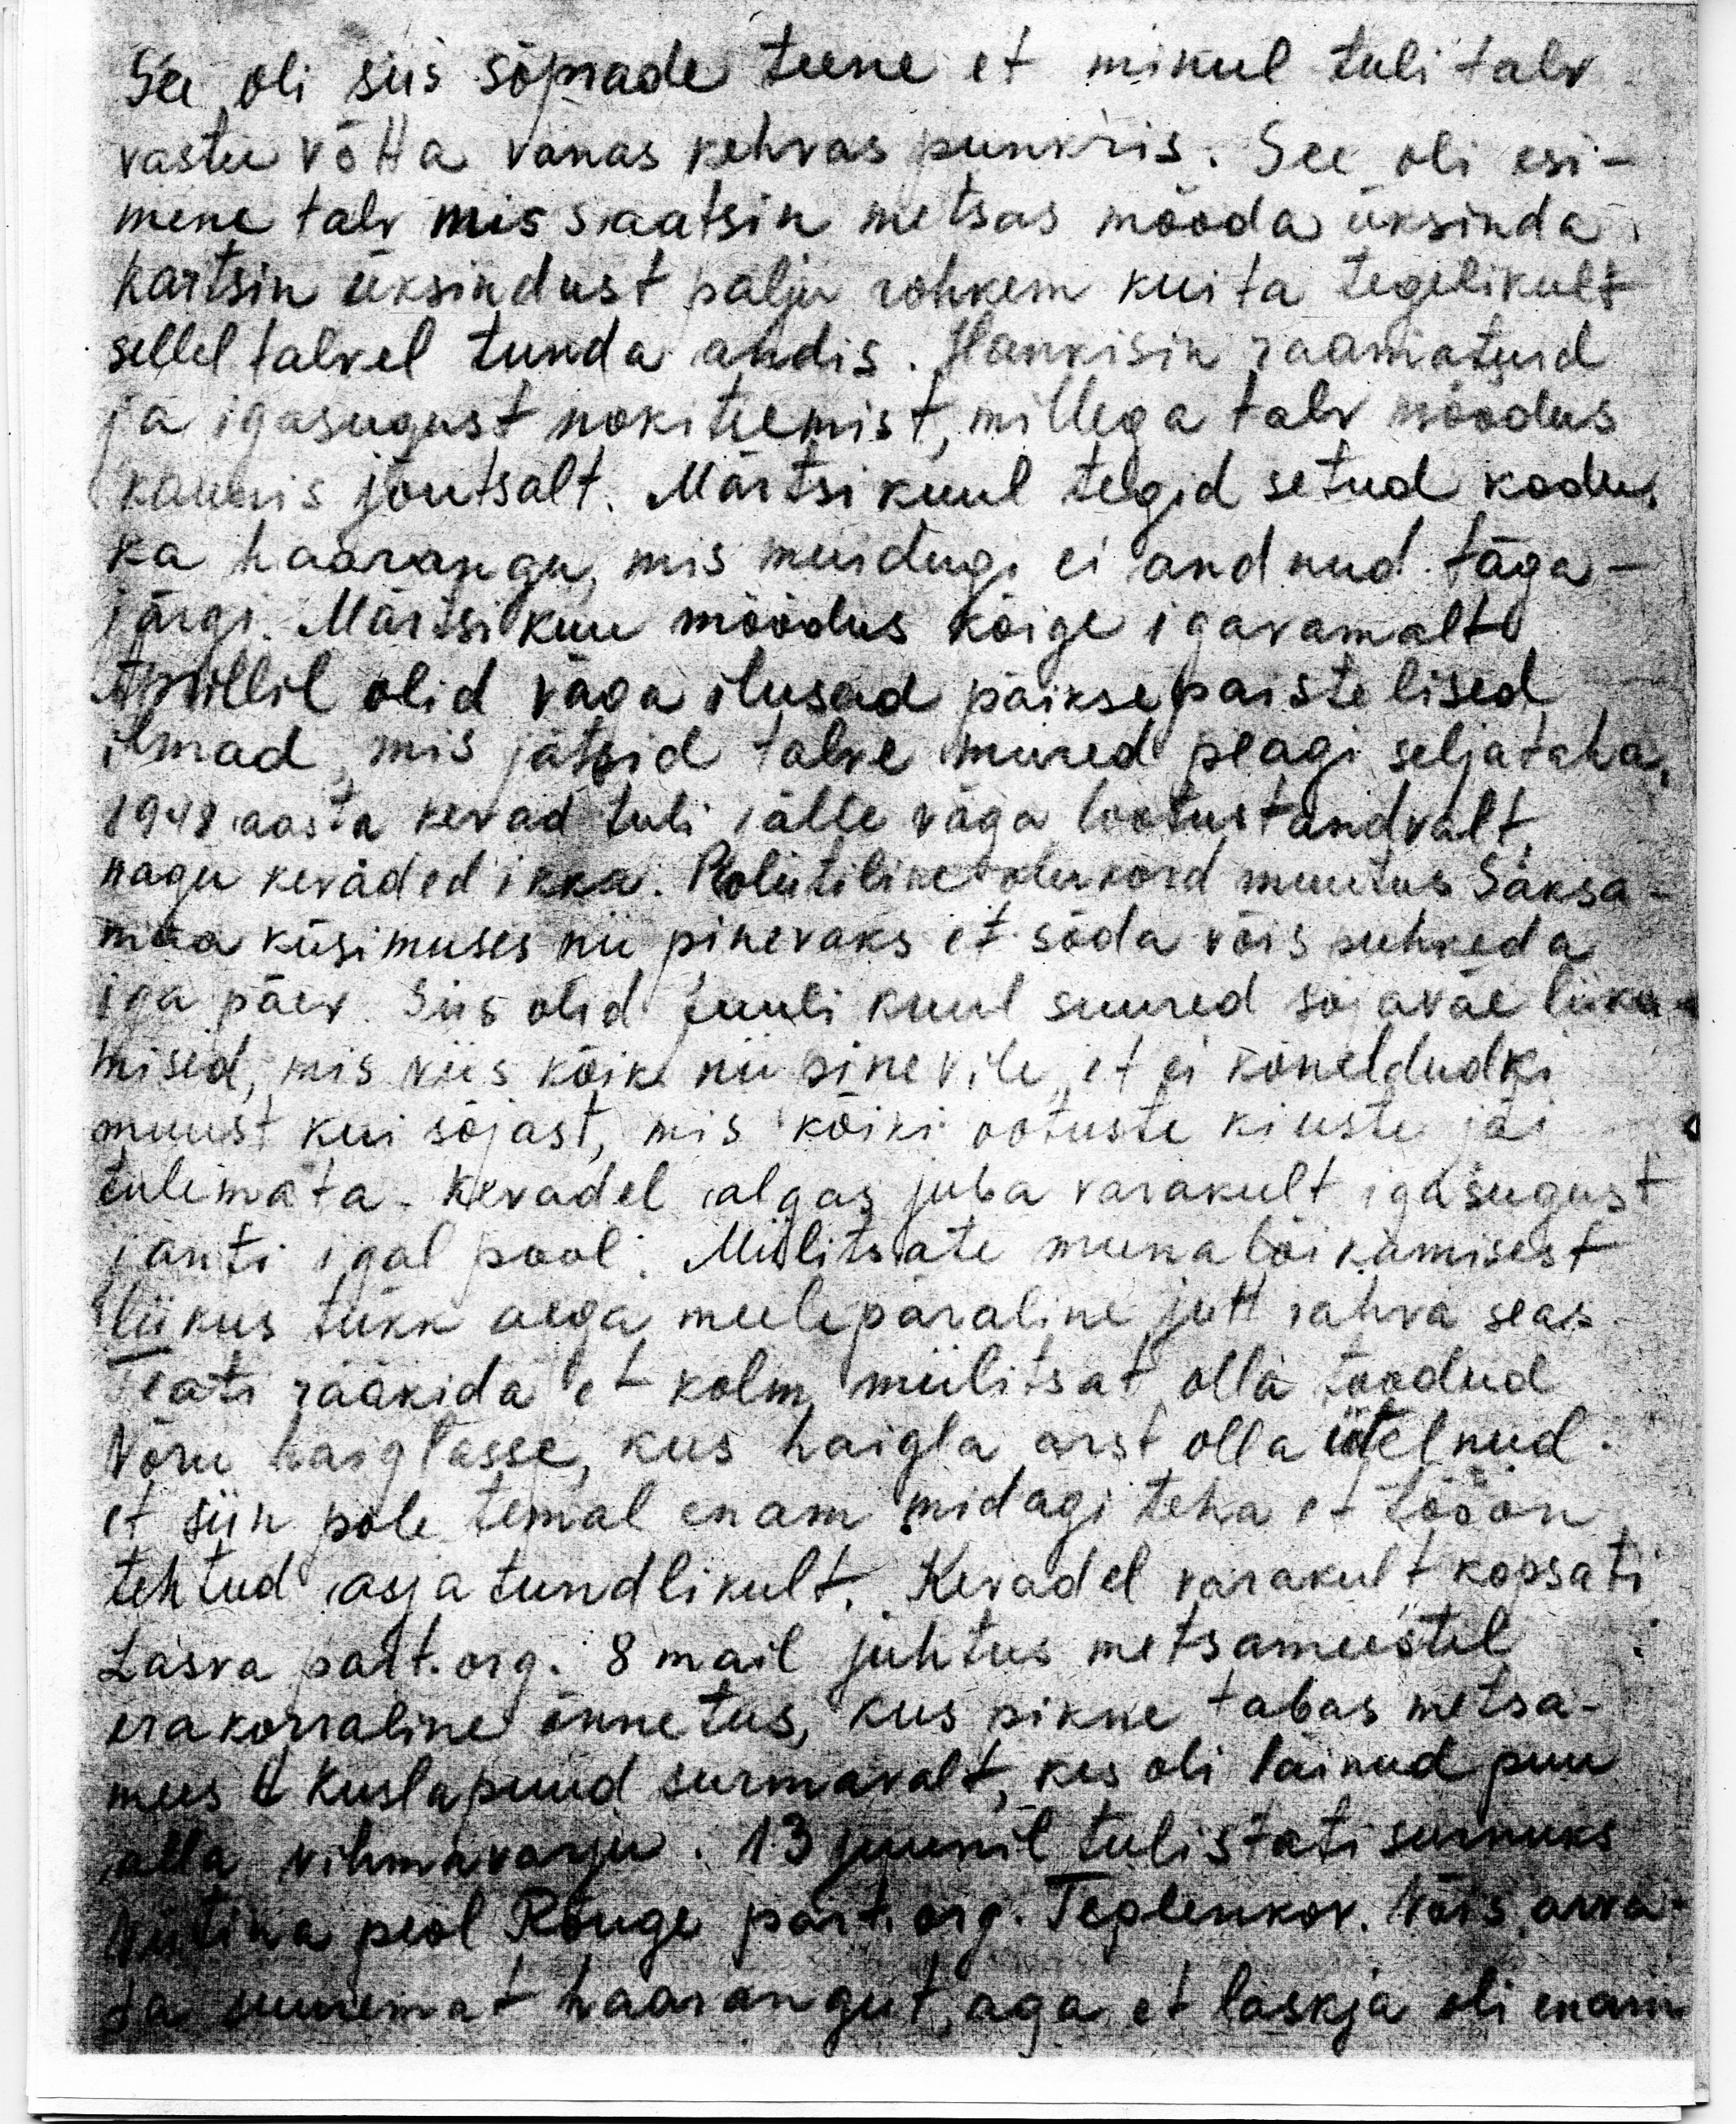 See oli siis sõprade teene et minul tuli talv
vastu võtta vanas kehvas punkris. See oli esi-
mene talv mis saatsin metsas mööda üksinda.
Kartsin üksindust palju rohkem kui ta tegelikult
sellel talvel tunda andis. Hankisin raamatuid
ja igasugust nokitsemist, millega talv möödus
kaunis jõutsalt. Märtsi kuul tegid setud kodu.
ka haarangu, mis muidugi ei andnud taga-
järgi. Märtsi kuu möödus kõige igavamalt.
Aprillil olid väga ilusad päiksepaistelised
ilmad, mis jätsid talve mured peagi seljataha.
1948 aasta kevad tuli jälle väga lootustandvalt,
nagu keväded ikka. Poliitiline olukord muutus Saksa-
maa küsimuses nii pinevaks et sõda võis puhkeda
iga päev. Siis olid juuli kuul suured sõjaväe liiku-
mised, mis viis kõik nii pinevile, et ei kõneldudki
muust kui sõjast, mis kõiki ootuste kiuste jäi
tulemata. Kevadel algas juba varakult igasugust
janti igal pool. Miilitsate muna lõikamisest
liikus tükk aega meelepäraline jutt rahva seas.
Teati rääkida et kolm miilitsat olla toodud
Võru haiglasse, kus haigla arst olla ütelnud.
et siin pole temal enam midagi teha et töö on
tehtud asjatundlikult. Kevadel varakult kopsati
Lasva part.org. 8 mail juhtus metsameestel
erakorraline õnnetus, kus pikne tabas metsa-
mees H Kuslapuud surmavalt, kes oli läinud puu
alla vihmavarju. 13 juunil tulistati surnuks
Viitina peol Rõuge part.org. Teplenkov. Võis arva-
ta suuremat haarangut, aga et laskja oli enam